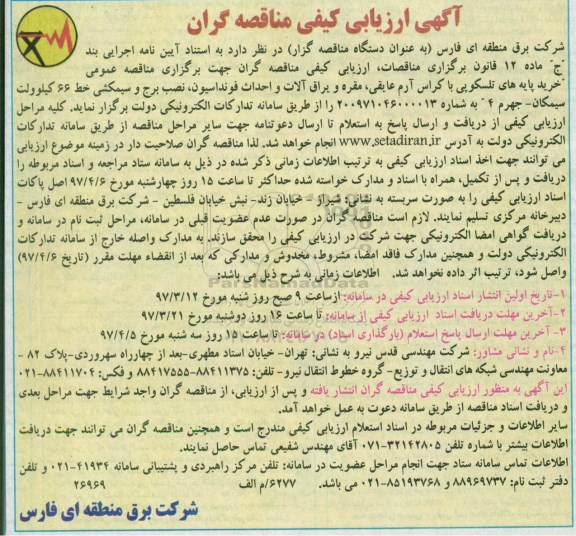 آگهی ارزیابی کیفی مناقصه گران
شرکت برق منطقه ای فارس (به عنوان دستگاه مناقصه گزار) در نظر دارد به استناد آیین نامه اجرایی بند
"ج" ماده ۱۲ قانون برگزاری مناقصات، ارزیابی کیفی مناقصه گران جهت برگزاری مناقصه عمومی
"خرید پایه های تلسکوپی با کراس آرم عایقی، مقره و یراق آلات و احداث فونداسیون، نصب برج و سیمکشی خط ۶۶ کیلوولت
سیمکان- جهرم ۴ " به شماره ۲۰۰۹۷۱۰۴۶۰۰۰۰۱۳ را از طریق سامانه تدارکات الکترونیکی دولت برگزار نماید. کلیه مراحل
ارزیابی کیفی از دریافت و ارسال پاسخ به استعلام تا ارسال دعوتنامه جهت سایر مراحل مناقصه از طریق سامانه تدارکات
الکترونیکی دولت به آدرس www.setadiran.ir انجام خواهد شد. لذا مناقصه گران صلاحیت دار در زمینه موضوع ارزیابی
می توانند جهت اخذ اسناد ارزیابی کیفی به ترتیب اطلاعات زمانی ذکر شده در ذیل به سامانه ستاد مراجعه و اسناد مربوطه را
دریافت و پس از تکمیل، همراه با اسناد و مدارک خواسته شده حداکثر تا ساعت ۱۵ روز چهارشنبه مورخ ۹۷/۴/۶ اصل پاکات
اسناد ارزیابی کیفی را به صورت سربسته به نشانی: شیراز - خیابان زند- نبش خیابان فلسطین - شرکت برق منطقه ای فارس -
دبیرخانه مرکزی تسلیم نمایند. لازم است مناقصه گران در صورت عدم عضویت قبلی در سامانه، مراحل ثبت نام در سامانه و
دریافت گواهی امضا الکترونیکی جهت شرکت در ارزیابی کیفی را محقق سازند. به مدارک واصله خارج از سامانه تدارکات
الکترونیکی دولت و همچنین مدارک فاقد امضا، مشروط، مخدوش و مدارکی که بعد از انقضاء مهلت مقرر (تاریخ ۹۷/۴/۶)
واصل شود، ترتیب اثر داده نخواهد شد. اطلاعات زمانی به شرح ذیل می باشد:
۱-تاریخ اولین انتشار اسناد ارزیابی کیفی در سامانه: از ساعت ۹ صبح روز شنبه مورخ ۹۷/۳/۱۲
۲-آخرین مهلت دریافت اسناد ارزیابی کیفی از سامانه: تا ساعت ۱۶ روز دوشنبه مورخ ۹۷/۳/۲۱
۳- آخرین مهلت ارسال پاسخ استعلام (بارگذاری اسناد) در سامانه: تا ساعت ۱۵ روز سه شنبه مورخ ۹۷/۴/۵
۴-نام و نشانی مشاور: شرکت مهندسی قدس نیرو به نشانی: تهران- خیابان استاد مطهری-بعد از چهارراه سهروردی-پلاک ۸۲ -
معاونت مهندسی شبکه های انتقال و توزیع- گروه خطوط انتقال نیرو- تلفن: ۸۸۴۱۱۳۷۵-۸۸۴۱۷۵۵۵ و فکس: ۸۸۴۱۱۷۰۴-۰۲۱
این آگهی به منظور ارزیابی کیفی مناقصه گران انتشار یافته و پس از ارزیابی، از مناقصه گران واجد شرایط جهت مراحل بعدی
و دریافت اسناد مناقصه از طریق سامانه دعوت به عمل خواهد آمد.
سایر اطلاعات و جزئیات مربوطه در اسناد استعلام ارزیابی کیفی مندرج است و همچنین مناقصه گران می توانند جهت دریافت
اطلاعات بیشتر با شماره تلفن ۳۲۱۴۲۸۰۵-۰۷۱ آقای مهندس شفیعی تماس حاصل نمایند.
اطلاعات تماس سامانه ستاد جهت انجام مراحل عضویت در سامانه: تلفن مرکز راهبردی و پشتیبانی سامانه ۴۱۹۳۴-۰۲۱ و تلفن
دفتر ثبت نام: ۸۸۹۶۹۷۳۷ و ۸۵۱۹۳۷۶۸-۰۲۱ می باشد. ۶۲۷۷/م الف ۲۶۹۶۹
شرکت برق منطقه ای فارس